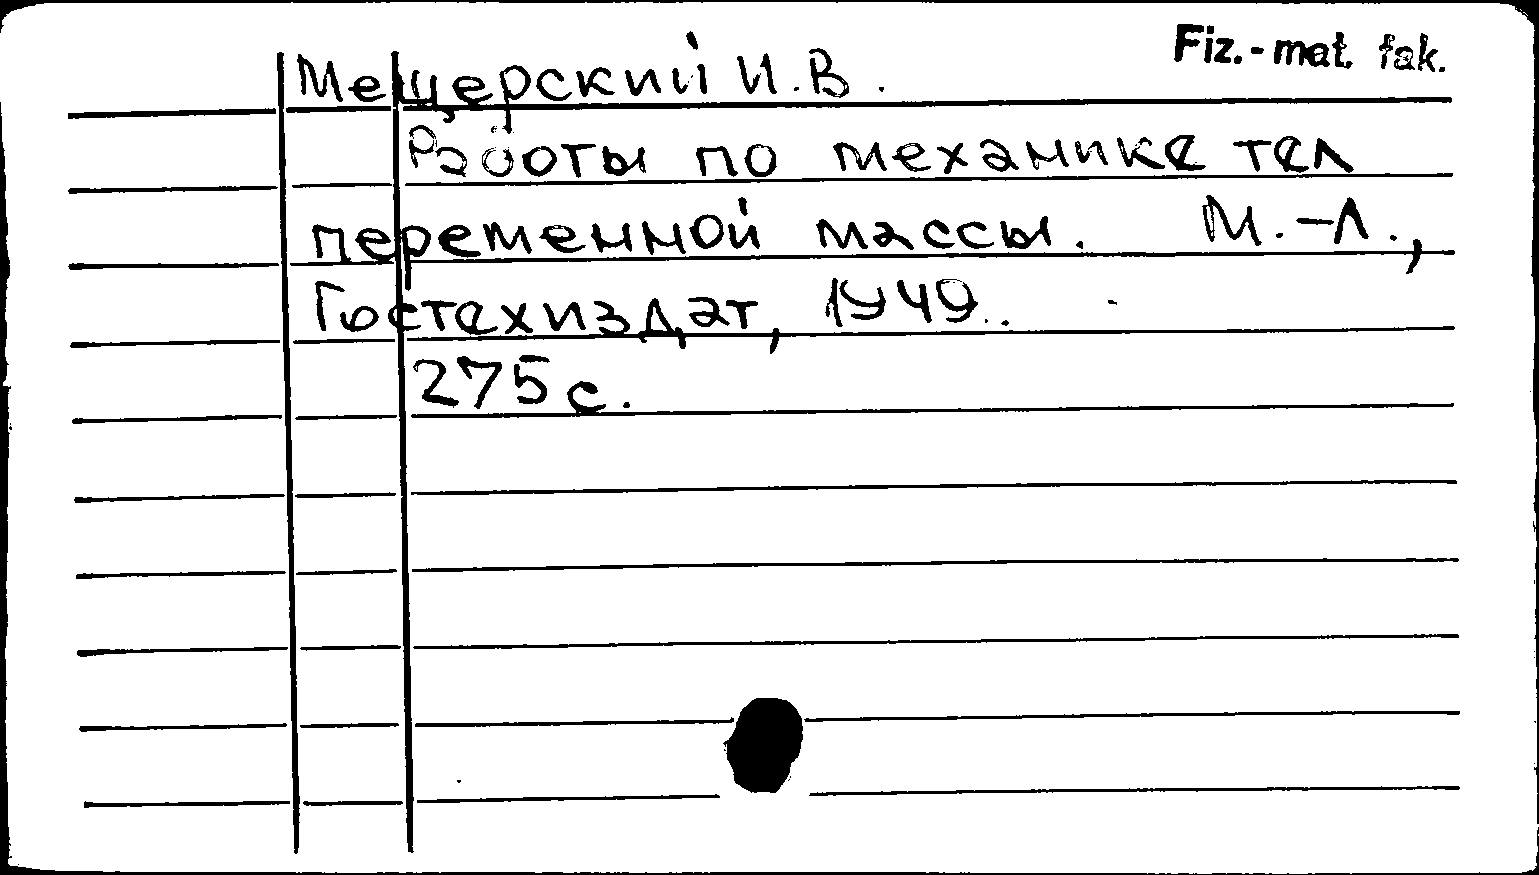 Fiz.-mat. fak.
Мещерский И.В.
Работы по механике тел
переменной массы. М.-Л.,
Гостехиздат, 1949.
275 с.